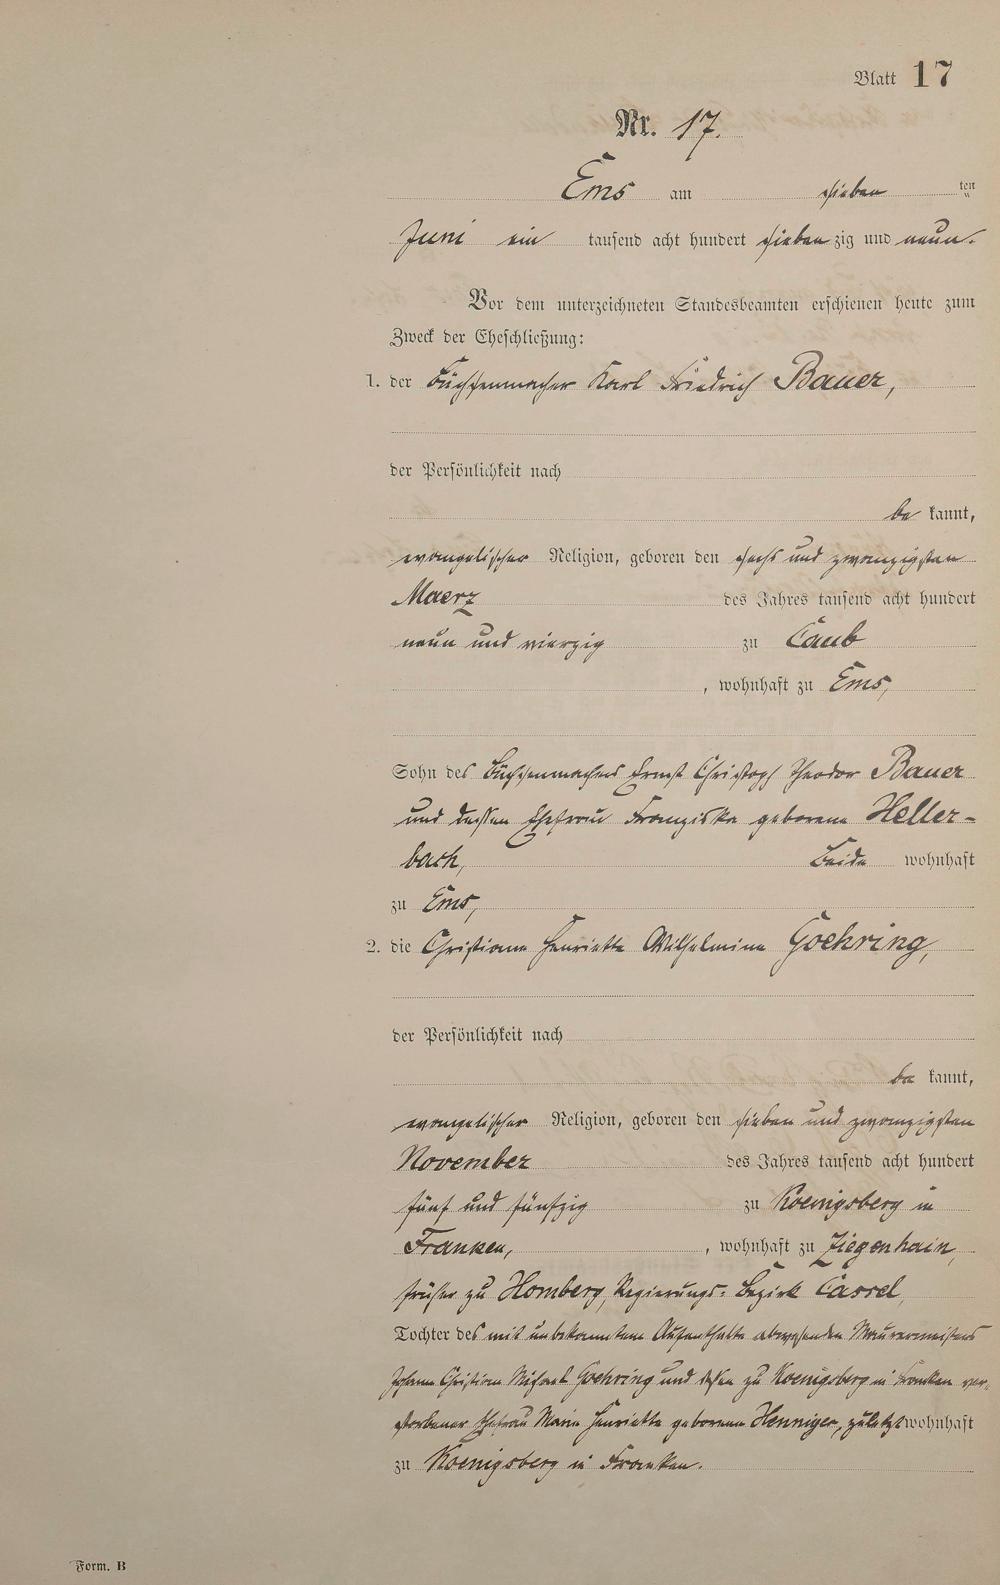 Blatt 17
Nr. 17.
Ems am sieben ten
Juni ein tausend acht hundert sieben zig und neun.
Vor dem unterzeichneten Standesbeamten erschienen heute zum
Zweck der Eheschließung:
1. der Büchsenmacher Karl Friedrich Bauer,
der Persönlichkeit nach
be kannt,
evangelischer Religion, geboren den sechs und zwanzigsten
Maerz des Jahres tausend acht hundert
neun und vierzig zu Caub
, wohnhaft zu Ems,
Sohn des Büchsenmachers Ernst Christoph Theodor Bauer
und dessen Ehefrau Franziska geborene Heller-
bach, Beide wohnhaft
zu Ems,
2. die Christiane Henriette Wilhelmine Goehring,
der Persönlichkeit nach
be kannt,
evangelischer Religion, geboren den sieben und zwanzigsten
November des Jahres tausend acht hundert
fünf und fünfzig zu Koenigsberg in
Franken, , wohnhaft zu Ziegenhain,
früher zu Homberg, Regierungs-Bezirk Cassel,
Tochter des mit unbekanntem Aufenthalte abwesenden Maurermeisters
Johann Christian Michael Goehring und dessen zu Koenigsberg in Franken ver-
storbener Ehefrau Maria Henriette geborene Henniger, zuletzt wohnhaft
zu Koenigsberg in Franken.
Form. B